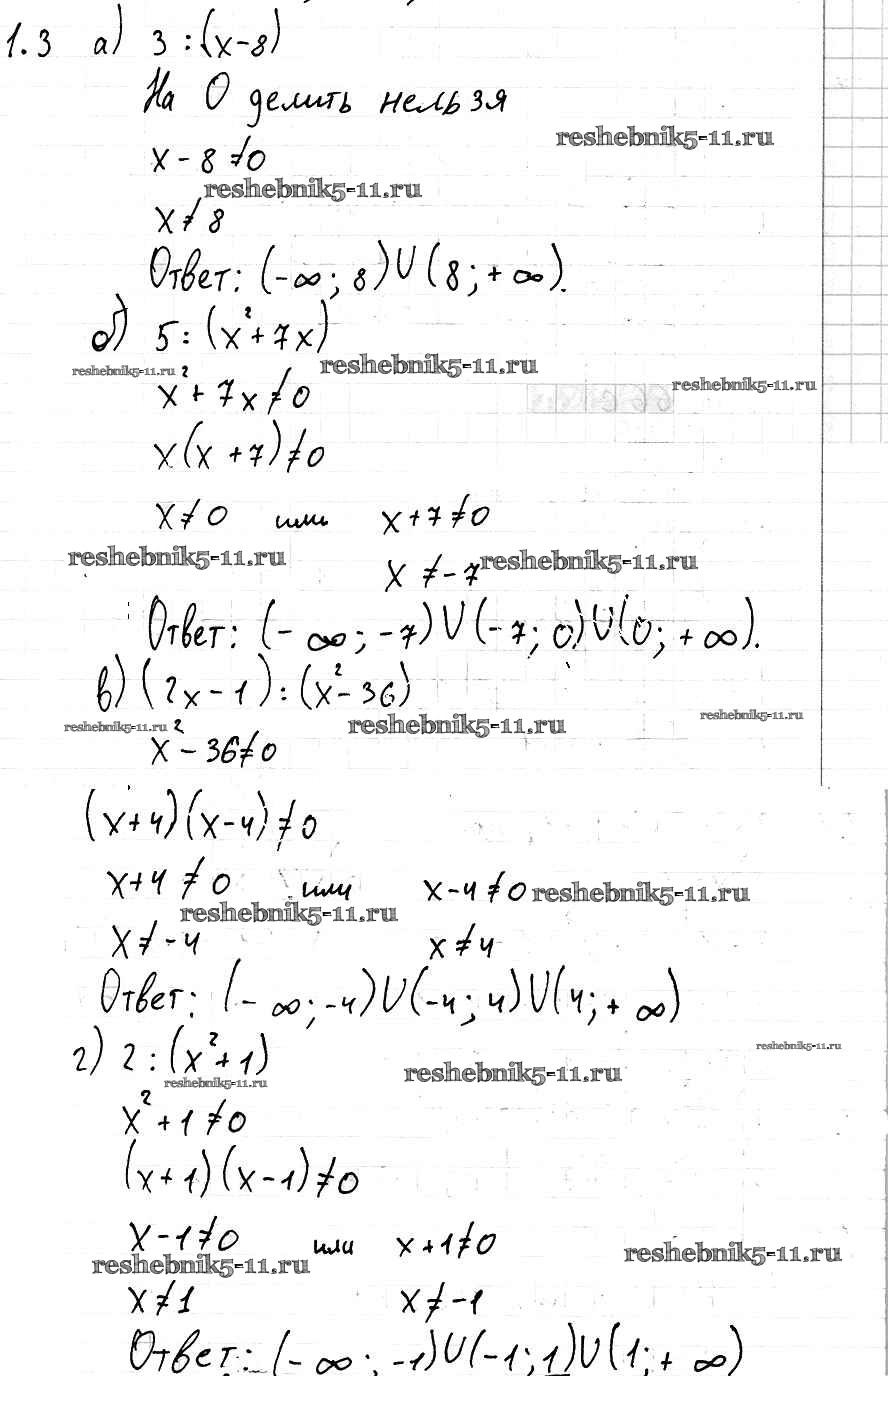 1.3 а) 3 : (x-8)
На 0 делить нельзя
reshebnik5-11.ru
x - 8 ≠ 0
reshebnik5-11.ru
x ≠ 8
Ответ: (-∞; 8) ∪ (8; +∞).
б) 5 : (x² + 7x)
reshebnik5-11.ru
reshebnik5-11.ru
reshebnik5-11.ru
x² + 7x ≠ 0
x(x + 7) ≠ 0
x ≠ 0 или x + 7 ≠ 0
reshebnik5-11.ru
x ≠ -7
reshebnik5-11.ru
Ответ: (-∞; -7) ∪ (-7; 0) ∪ (0; +∞).
в) (2x - 1) : (x² - 36)
reshebnik5-11.ru
reshebnik5-11.ru
reshebnik5-11.ru
x² - 36 ≠ 0
(x+4)(x-4) ≠ 0
x+4 ≠ 0 или x-4 ≠ 0
reshebnik5-11.ru
reshebnik5-11.ru
x ≠ -4 x ≠ 4
Ответ: (-∞; -4) ∪ (-4; 4) ∪ (4; +∞)
г) 2 : (x² + 1)
reshebnik5-11.ru
reshebnik5-11.ru
reshebnik5-11.ru
x² + 1 ≠ 0
(x+1)(x-1) ≠ 0
x - 1 ≠ 0 или x + 1 ≠ 0
reshebnik5-11.ru
reshebnik5-11.ru
x ≠ 1 x ≠ -1
Ответ: (-∞; -1) ∪ (-1; 1) ∪ (1; +∞)